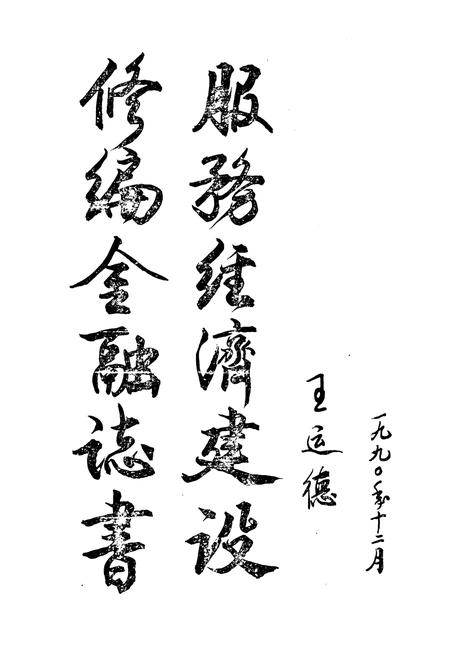 修编金融誌書
服務经濟建设
王运德
一九九〇年十二月